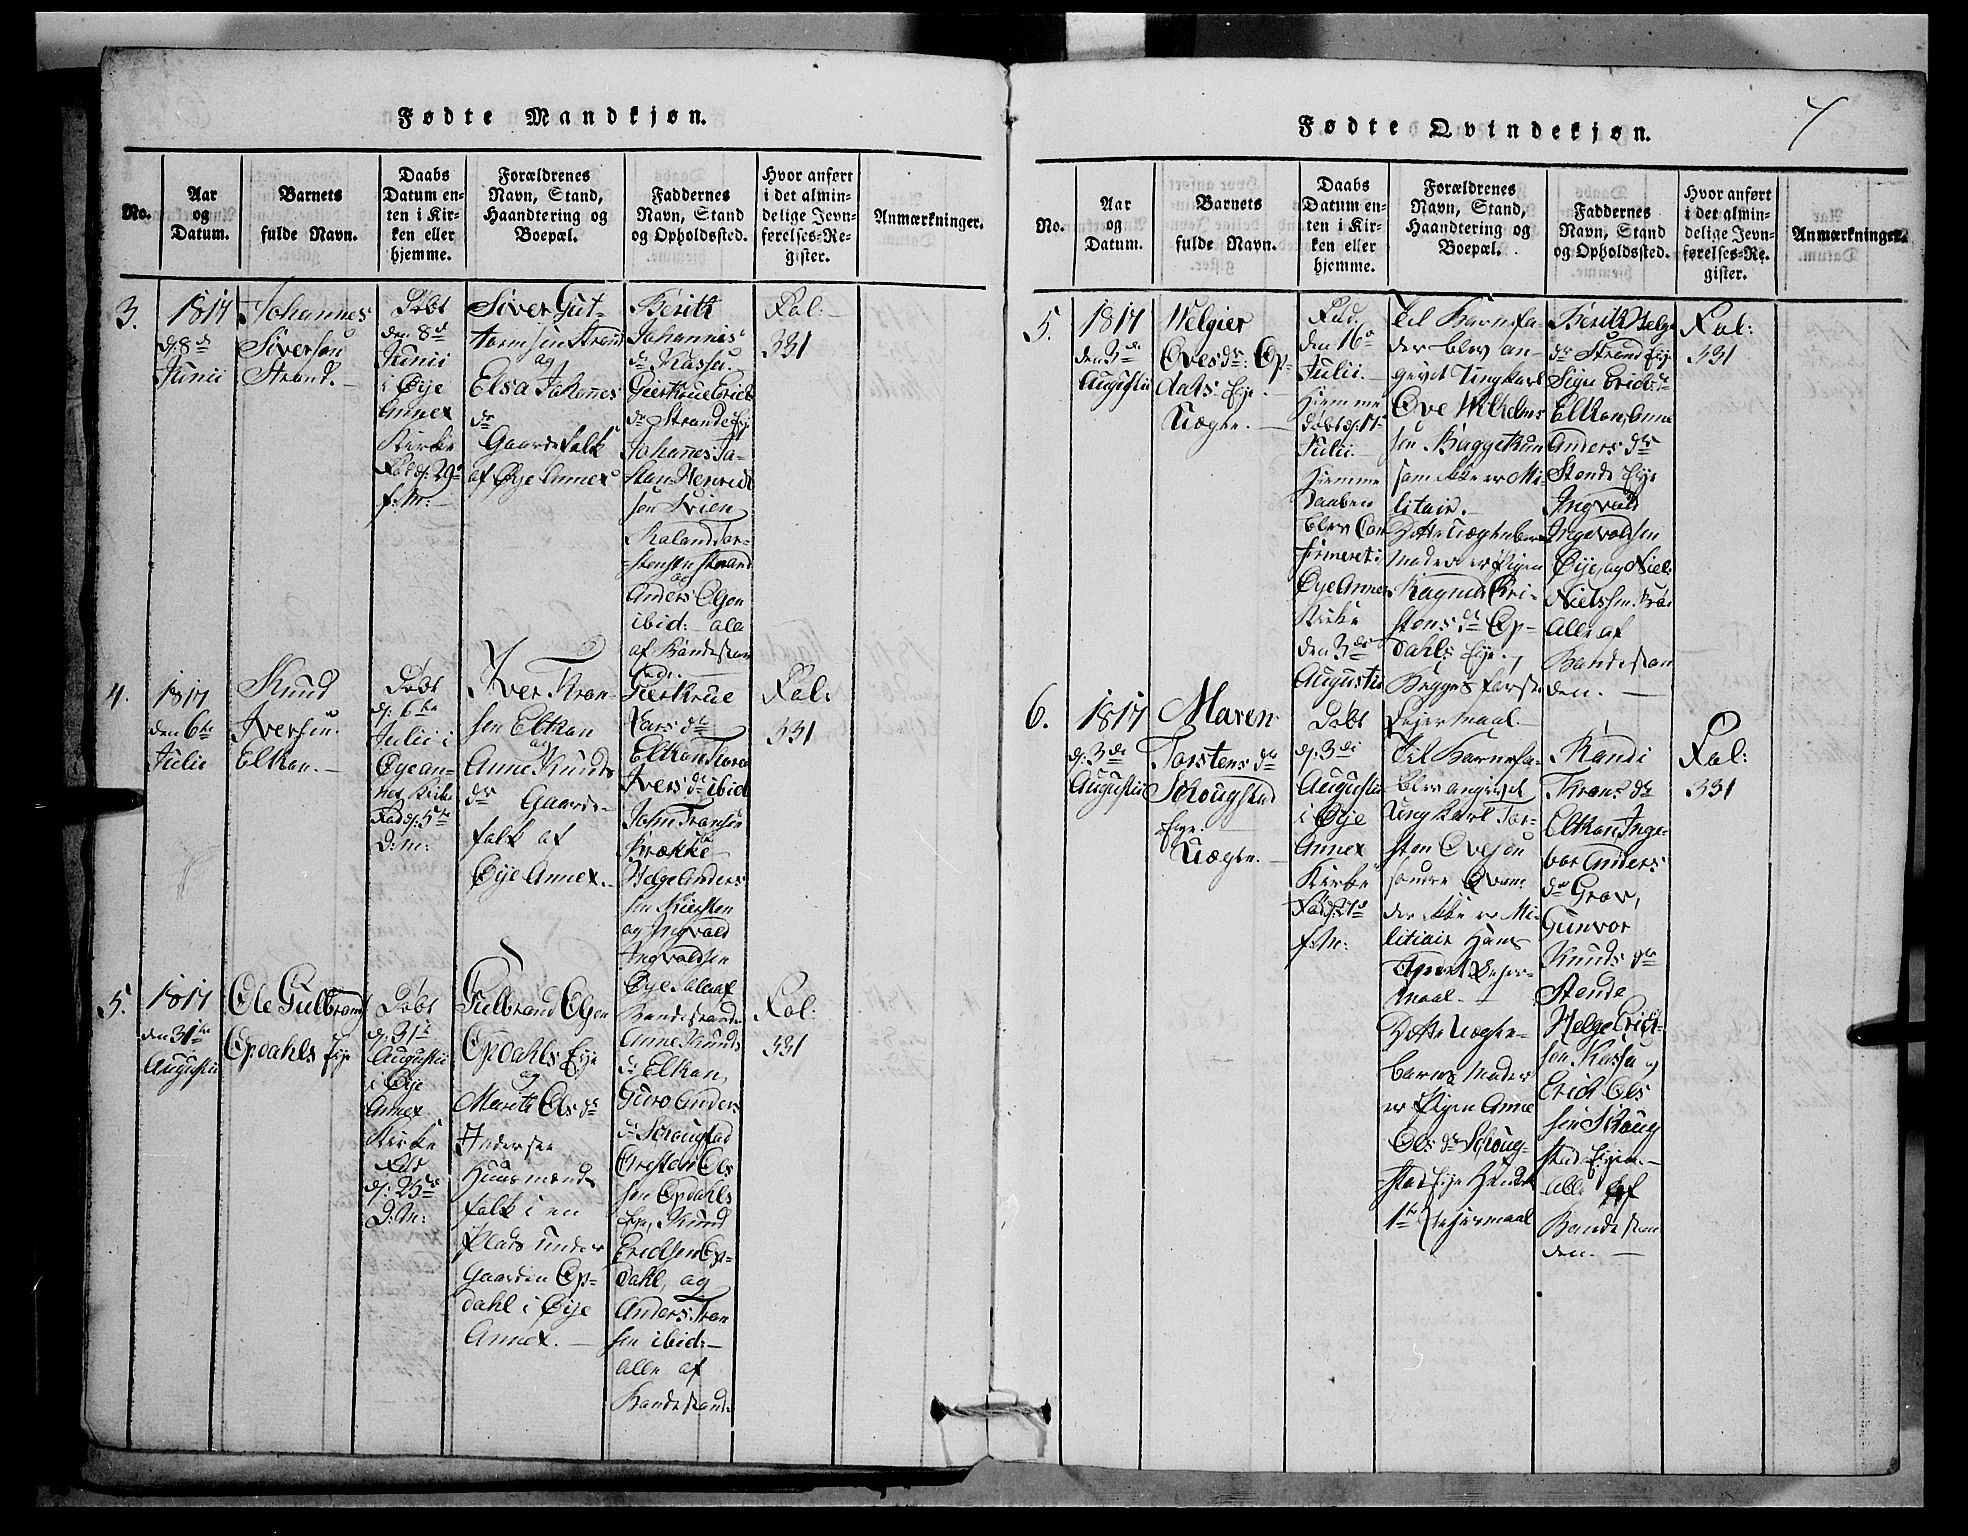 Fødte Mandkjøn.
No.
Aar
og
Datum.
Barnets
fulde Navn.
Daabs
Datum en-
ten i Kir-
ken eller
hjemme.
Forældrenes
Navn, Stand,
Haandtering og
Boepæl.
Faddernes
Navn, Stand
og Opholdssted.
Hvor anført
i det almin-
delige Jevn-
førelses-Re-
gister.
Anmærkninger.
3.
1817
d. 8de
Junii
Johannes
Siversen
Strand.
Døbt
den 8d
Junii
i Øye
Annex
Kirke
Siver Gut-
tormsen Strand
og
Elsa Johannes
dr
Gaardefolk
af Øye Annex
Berith
Johannis
dr
Giertrue Erichs
dr Strande Eje
Johannes To-
sten Henrich
sen Kvien
Roland Tor-
stensen Strand
og
Anders Olsen
ibid: alle
af Bondestan
den.
Fol:
331
4.
1817
den 6te
Julii
Knud
Iversen
Elken.
Døbt
d. 6te
Julii i
Øye An-
nex Kirke
Fød d. 5te
D: M:
Iver Tron-
sen Elken
og
Anne Knuds
dr Gaarde-
folk af
Øye Annex.
Giertrue
Lars dr
Elken
Ivers dr ibid
John Tronsen
Helge Anders
sen Kiersten
og Ingvald
Ingvoldsen
Øye Alle af
Bondestanden
Fol:
331
5.
1817
den 31te
Augustii
Ole Gulbrands
Opdahls Eje
Døbt
d. 31te
Augustii
i Øye
Annex
Kirke
Fød
d. 25de
D: M:
Gulbrand Olsen
Opdahls Eje
og
Marith Ols dr
Huusmænds
folk i en
Plads under
Gaarden Op-
dahl i Øye
Annex.
Anne Knuds
dr Elken,
Guro Anders
dr Schougstad
Christen Ols
sen Opdahls
Eje, Knud
Erichsen Op-
dahl, og
Anders Tron
sen ibid:
alle af
Bondestand:
Fol:
331
Fødte Qvindekjøn.
7
No.
Aar
og
Datum.
Barnets
fulde Navn.
Daabs
Datum en-
ten i Kir-
ken eller
hjemme.
Forældrenes
Navn, Stand,
Haandtering og
Boepæl.
Faddernes
Navn, Stand
og Opholdssted.
Hvor anført
i det almin-
delige Jevn-
førelses-Re-
gister.
Anmærkninger.
5.
1817
den 3de
Augustii
Welgier
Ovesdr: Op-
dals Eje.
Uægte.
Fød.
den 16de
Julii.
Hjemme
døbt d. 17
Julii.
Hjemme
Daaben
blev Con
firmeret i
Øye Annex
Kirke
den 3de
Augustii
Til Barnefa-
der blev an-
givet Ungkarl
Ove Wilhelms
sen
som ikke er Mi
litair.
Dette Uægtebarns
Moder er Pigen
Ragnild Kri-
stens dr Op-
dahls Eje.
Begges første
Lejermaal.
Berith Helge
dr Strand Eje
Sigri Erichs dr
Elken, Anne
Anders dr
Stende Eje
Ingvald
Ingevoldsen
Øye, og Niels
Nielssen
Alle af
Bondestan
den.
Fol:
331
6.
1817
d. 3de
Augustii
Maren
Torstens dr
Schougstad
Eje.
Uægte.
Døbt
d. 3di
Augustii
i Øye
Annex
Kirke
Til Barnefa-
Blev angivet
Ungkarl Tor-
sten Ovesen
søndre Qvam
der ikke er Mi
litair Hans
Andet Lejer-
maal.
Dette Uægte-
barns Moder
er Pigen Anne
Ols dr Schoug-
stad Eje Hendes
1te Lejermaal
Randi
Trons dr
Elken Inge-
bor Anders
dr Grav,
Gunvor
Knuds dr
Stende
Helge Erich-
sen Kassa og
Erich Ols
sen Schoug
stad Ejen.
Alle af
Bondestan
den.
Fol:
331